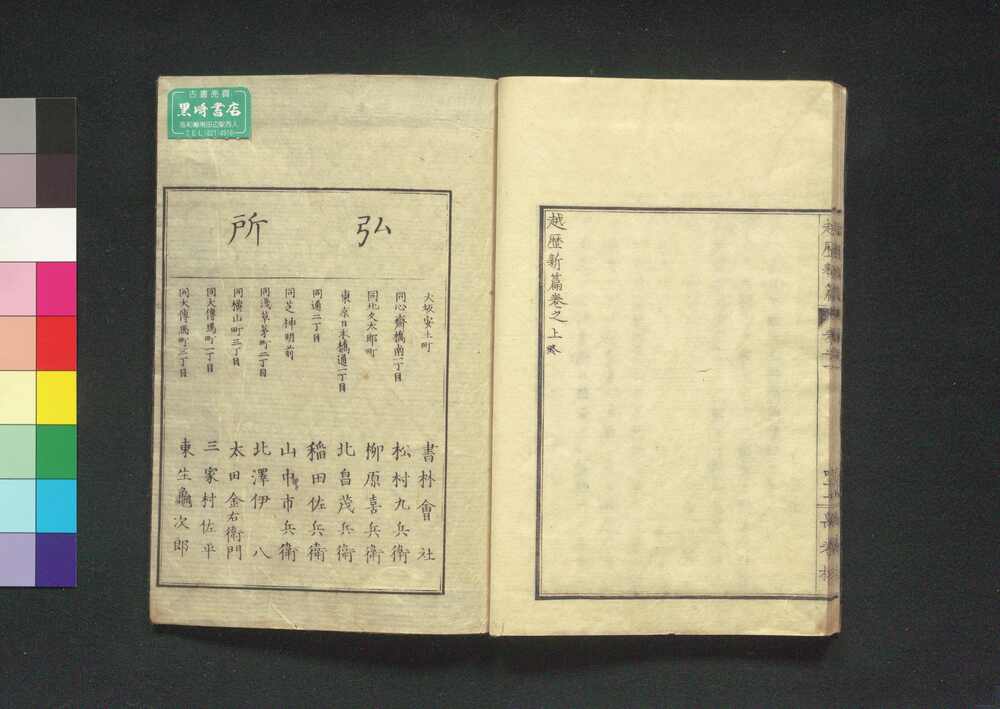 越歴新篇巻之上終
弘所
大坂安土町 書林會社
同心齋橋南一丁目 松村九兵衛
同北久太郎町 柳原喜兵衛
東京日本橋通一丁目 北畠茂兵衛
同通二丁目 稲田佐兵衛
同芝神明前 山中市兵衛
同淺草茅町二丁目 北澤伊八
同横山町三丁目 太田金右衛門
同大傳馬町一丁目 三家村佐平
同大傳馬町三丁目 東生龜次郎
古書売買
黒崎書店